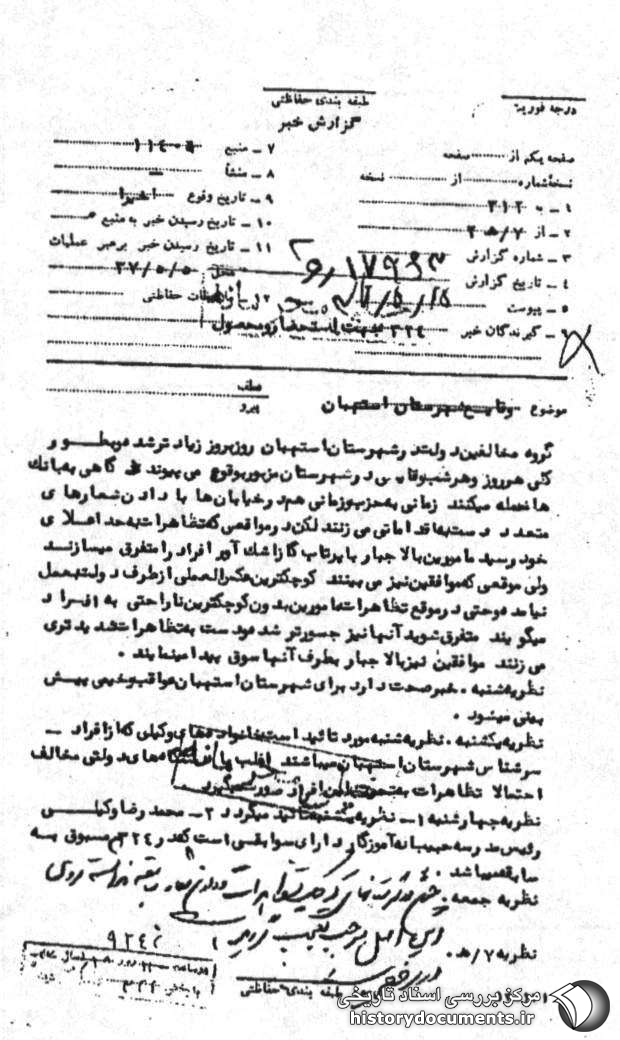 طبقه بندی حفاظتی
گزارش خبر
درجه فوریت
صفحه یکم از صفحه
نسخه شماره از نسخه
۱ – به ۳۱۲
۲ – از ۷/ه‍
۳ – شماره گزارش
۴ – تاریخ گزارش
۵ – پیوست
۶ – گیرندگان خبر ۳۲۴
۷ – منبع
۸ – منشأ –
۹ – تاریخ وقوع اخیرا
۱۰ – تاریخ رسیدن خبر به منبع
۱۱ – تاریخ رسیدن خبر برهبر عملیات
محل ۳۷/۵/۵
۱۲ – ملاحظات حفاظتی
بجهت استحضار و محصول
عطف
پیرو
موضوع – وقایع شهرستان استهبان
گروه مخالفین دولت در شهرستان استهبان روزبروز زیادتر شده و بطور
کلی هر روز و هر شب وقایعی در شهرستان مزبور بوقوع می پیوندد گاهی به بانک
ها حمله میکنند زمانی به حزب و زمانی هم در خیابان ها با دادن شعارهای
متعدد دست به اقداماتی می زنند لکن در مواقعی که تظاهرات به حد اعلای
خود رسید مامورین بالاجبار با پرتاب گاز اشک آور افراد را متفرق میسازند
ولی موقعی که موافقین نیز می بینند کوچکترین عکس العملی از طرف دولت بعمل
نیامده و حتی در موقع تظاهرات مامورین بدون کوچکترین ناراحتی به افراد
میگویند متفرق شوید آنها نیز جسورتر شده و دست به تظاهرات شدیدتری
می زنند موافقین نیز بالاجبار بطرف آنها سوق پیدا مینمایند .
نظریه شنبه . خبر صحت دارد برای شهرستان استهبان عواقب وخیمی پیش
بینی میشود .
نظریه یکشنبه . نظریه شنبه مورد تائید است خانواده های وکیلی که از افراد –
سرشناس شهرستان استهبان میباشند اغلب با دستگاههای دولتی مخالف
احتمالا تظاهرات به تحریک این افراد صورت میگیرد
نظریه چهارشنبه ۱– نظریه یکشنبه تائید میگردد ۲– محمد رضا وکیلی
رئیس مدرسه حبیب آموزگار دارای سوابقی است که در ۳۲۴ مسبوق به
سابقه میباشد .
نظریه جمعه .
نظریه ۷/ه‍ .
۹۲۴
طبقه بندی حفاظتی
مرکز بررسی اسناد تاریخی
historydocuments.ir